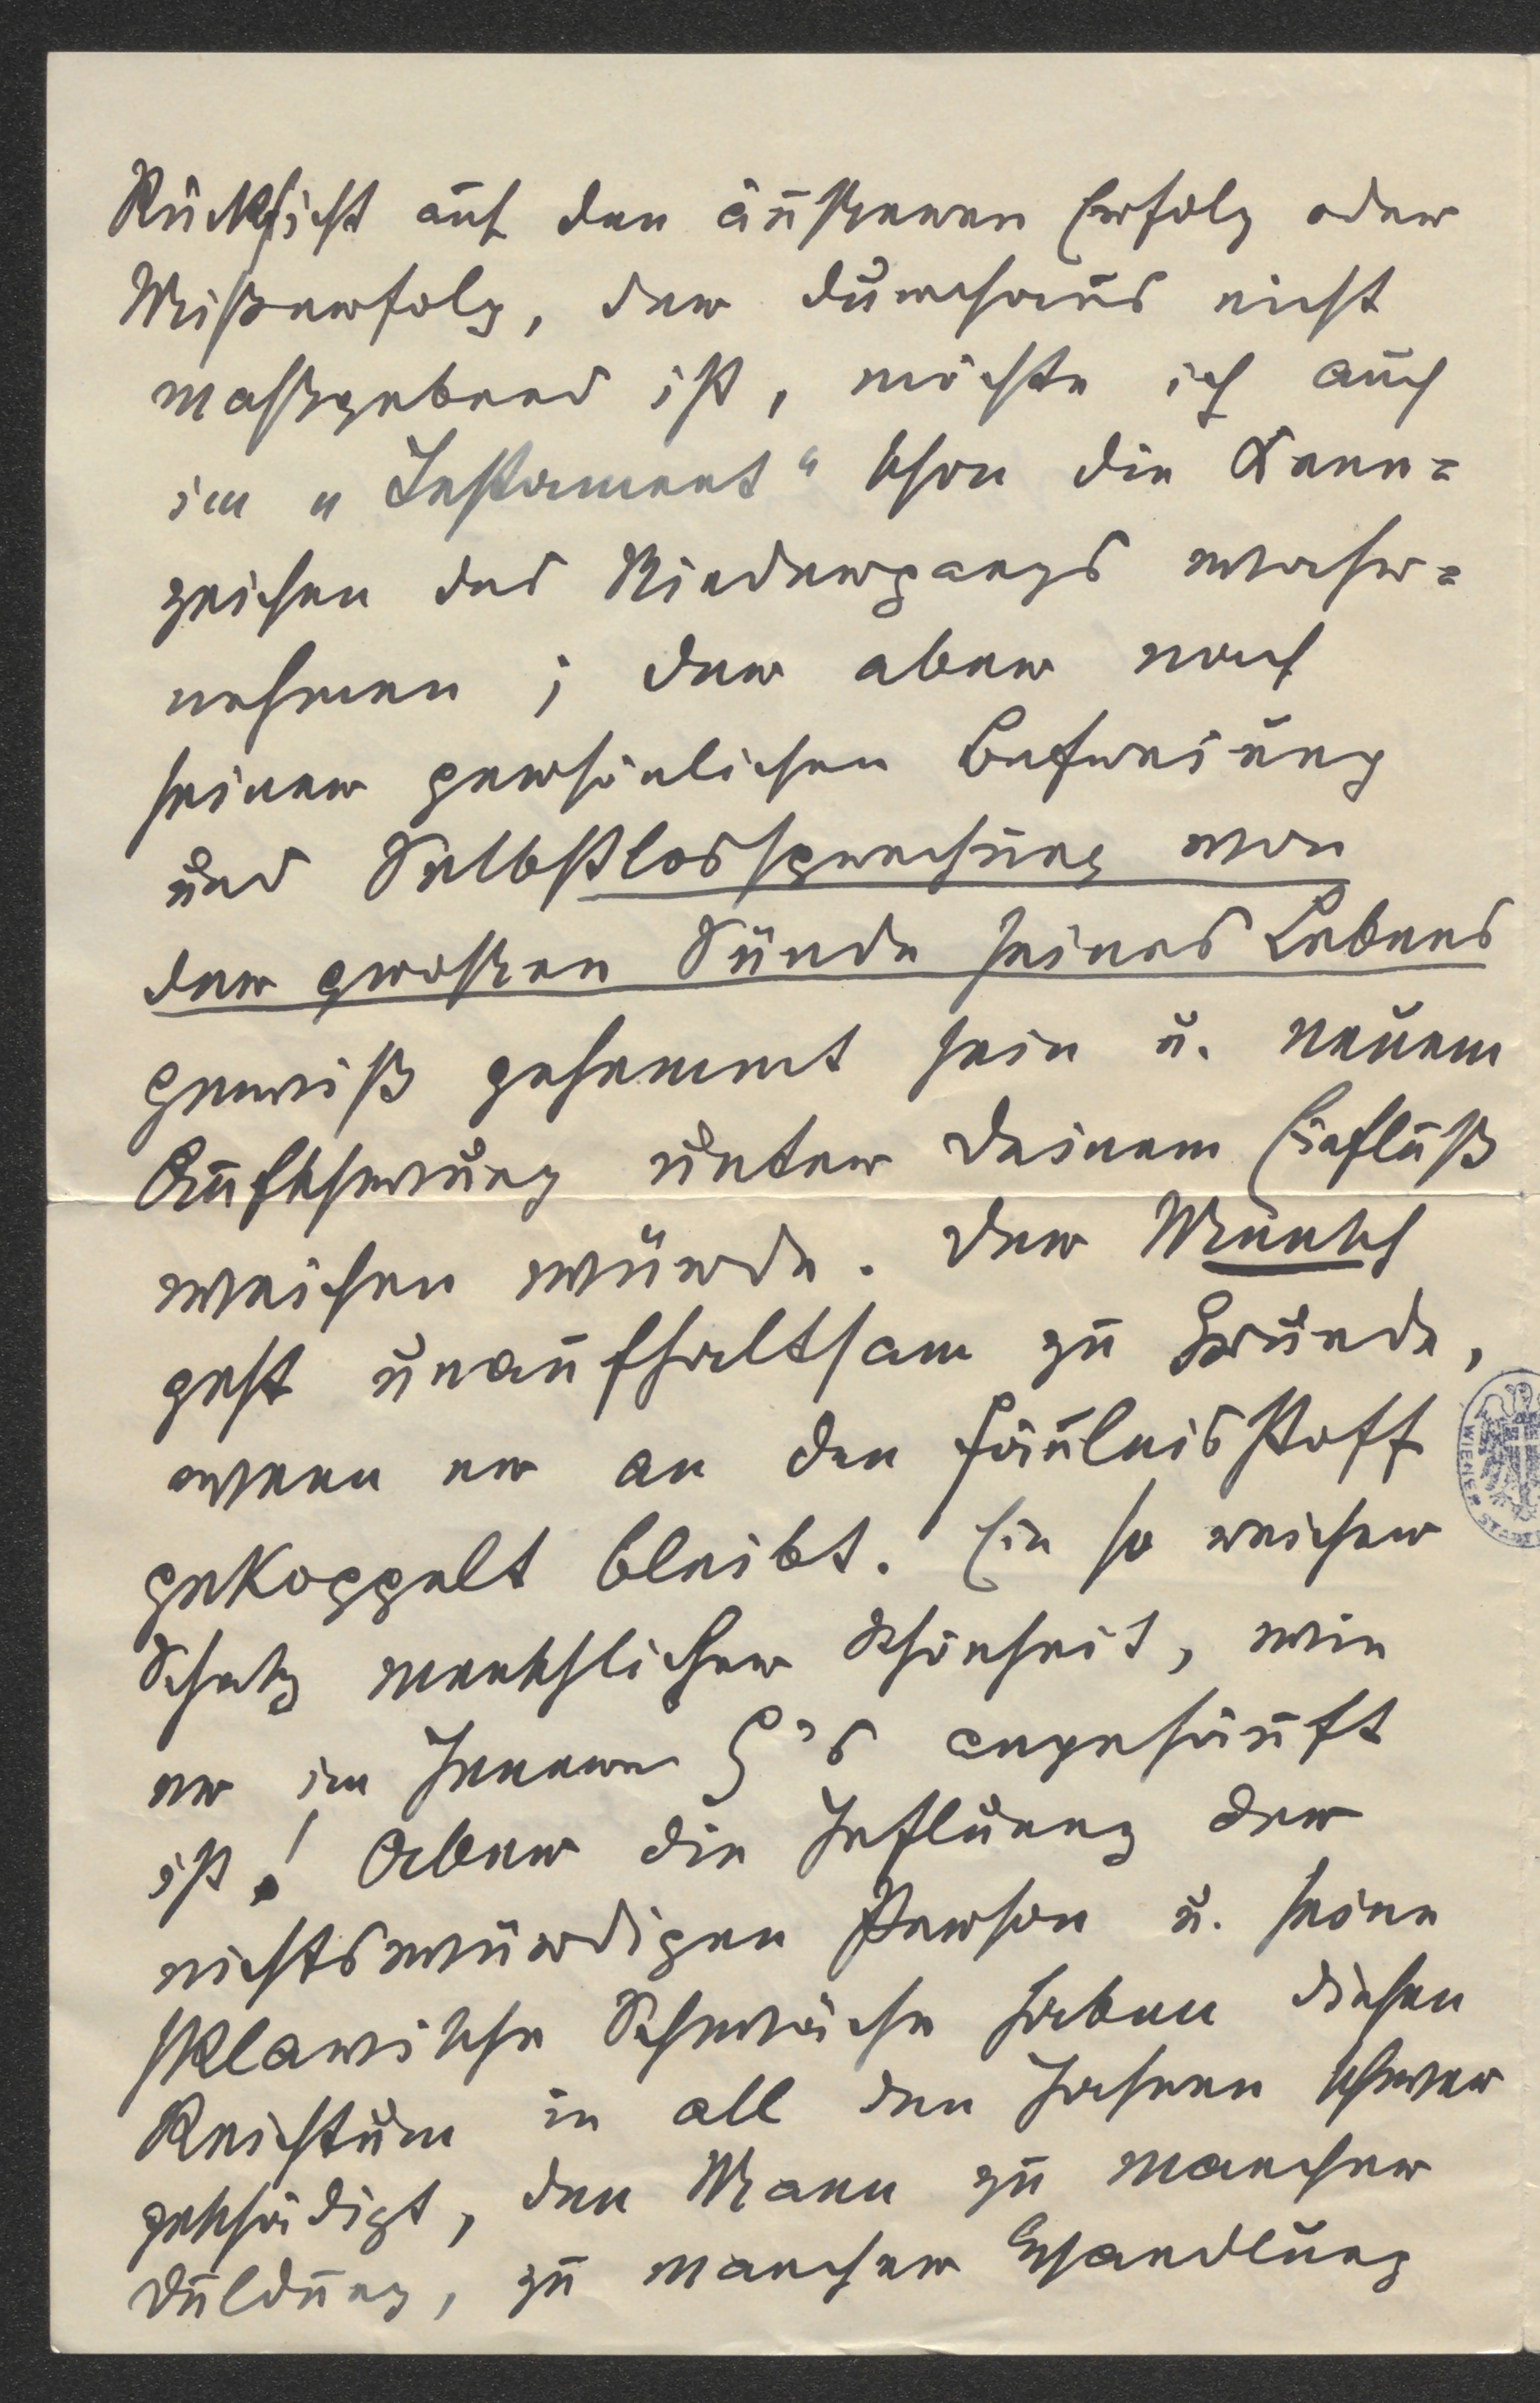 Rücksicht auf den äußeren Erfolg oder
Mißerfolg, der durchaus nicht
maßgebend ist, möchte ich auch
im „Testament“ schon die Kenn=
zeichen des Niedergangs wahr=
nehmen; der aber nach
seiner persönlichen Befreiung
und Selbstlossprechung von
der großen Sünde seines Lebens
gewiß gehemmt sein u. neuem
Aufschwung unter Deinem Einfluß
weichen würde. Der Mensch
geht unaufhaltsam zu Grunde,
wenn er an den Fäulnisstoff
gekoppelt bleibt. Ein so reicher
Schatz menschlicher Schönheit, wie
er im Innern G's angehäuft
ist! Aber die Influenz der
nichtswürdigen Person u. seine
sklavische Schwäche haben diesen
Reichtum in all den Jahren schwer
geschädigt, den Mann zu mancher
Duldung, zu mancher Handlung
WIENER STADT